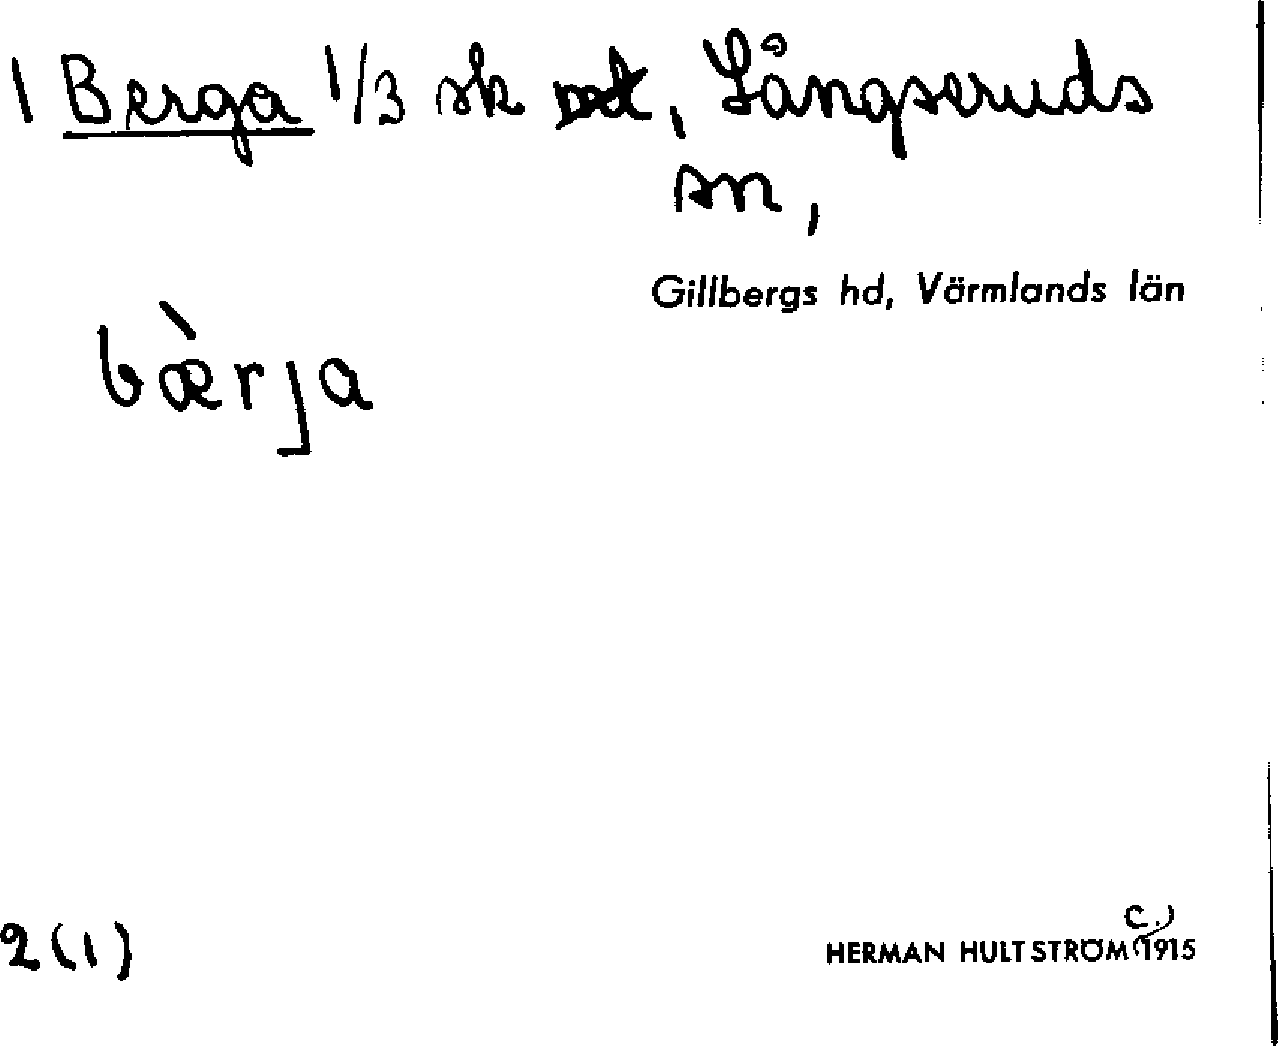 1 Berga 1/3 sk, Långseruds
sn,
Gillbergs hd, Värmlands län
bæ̀rja
2(1)
HERMAN HULTSTRÖM c.) 1915